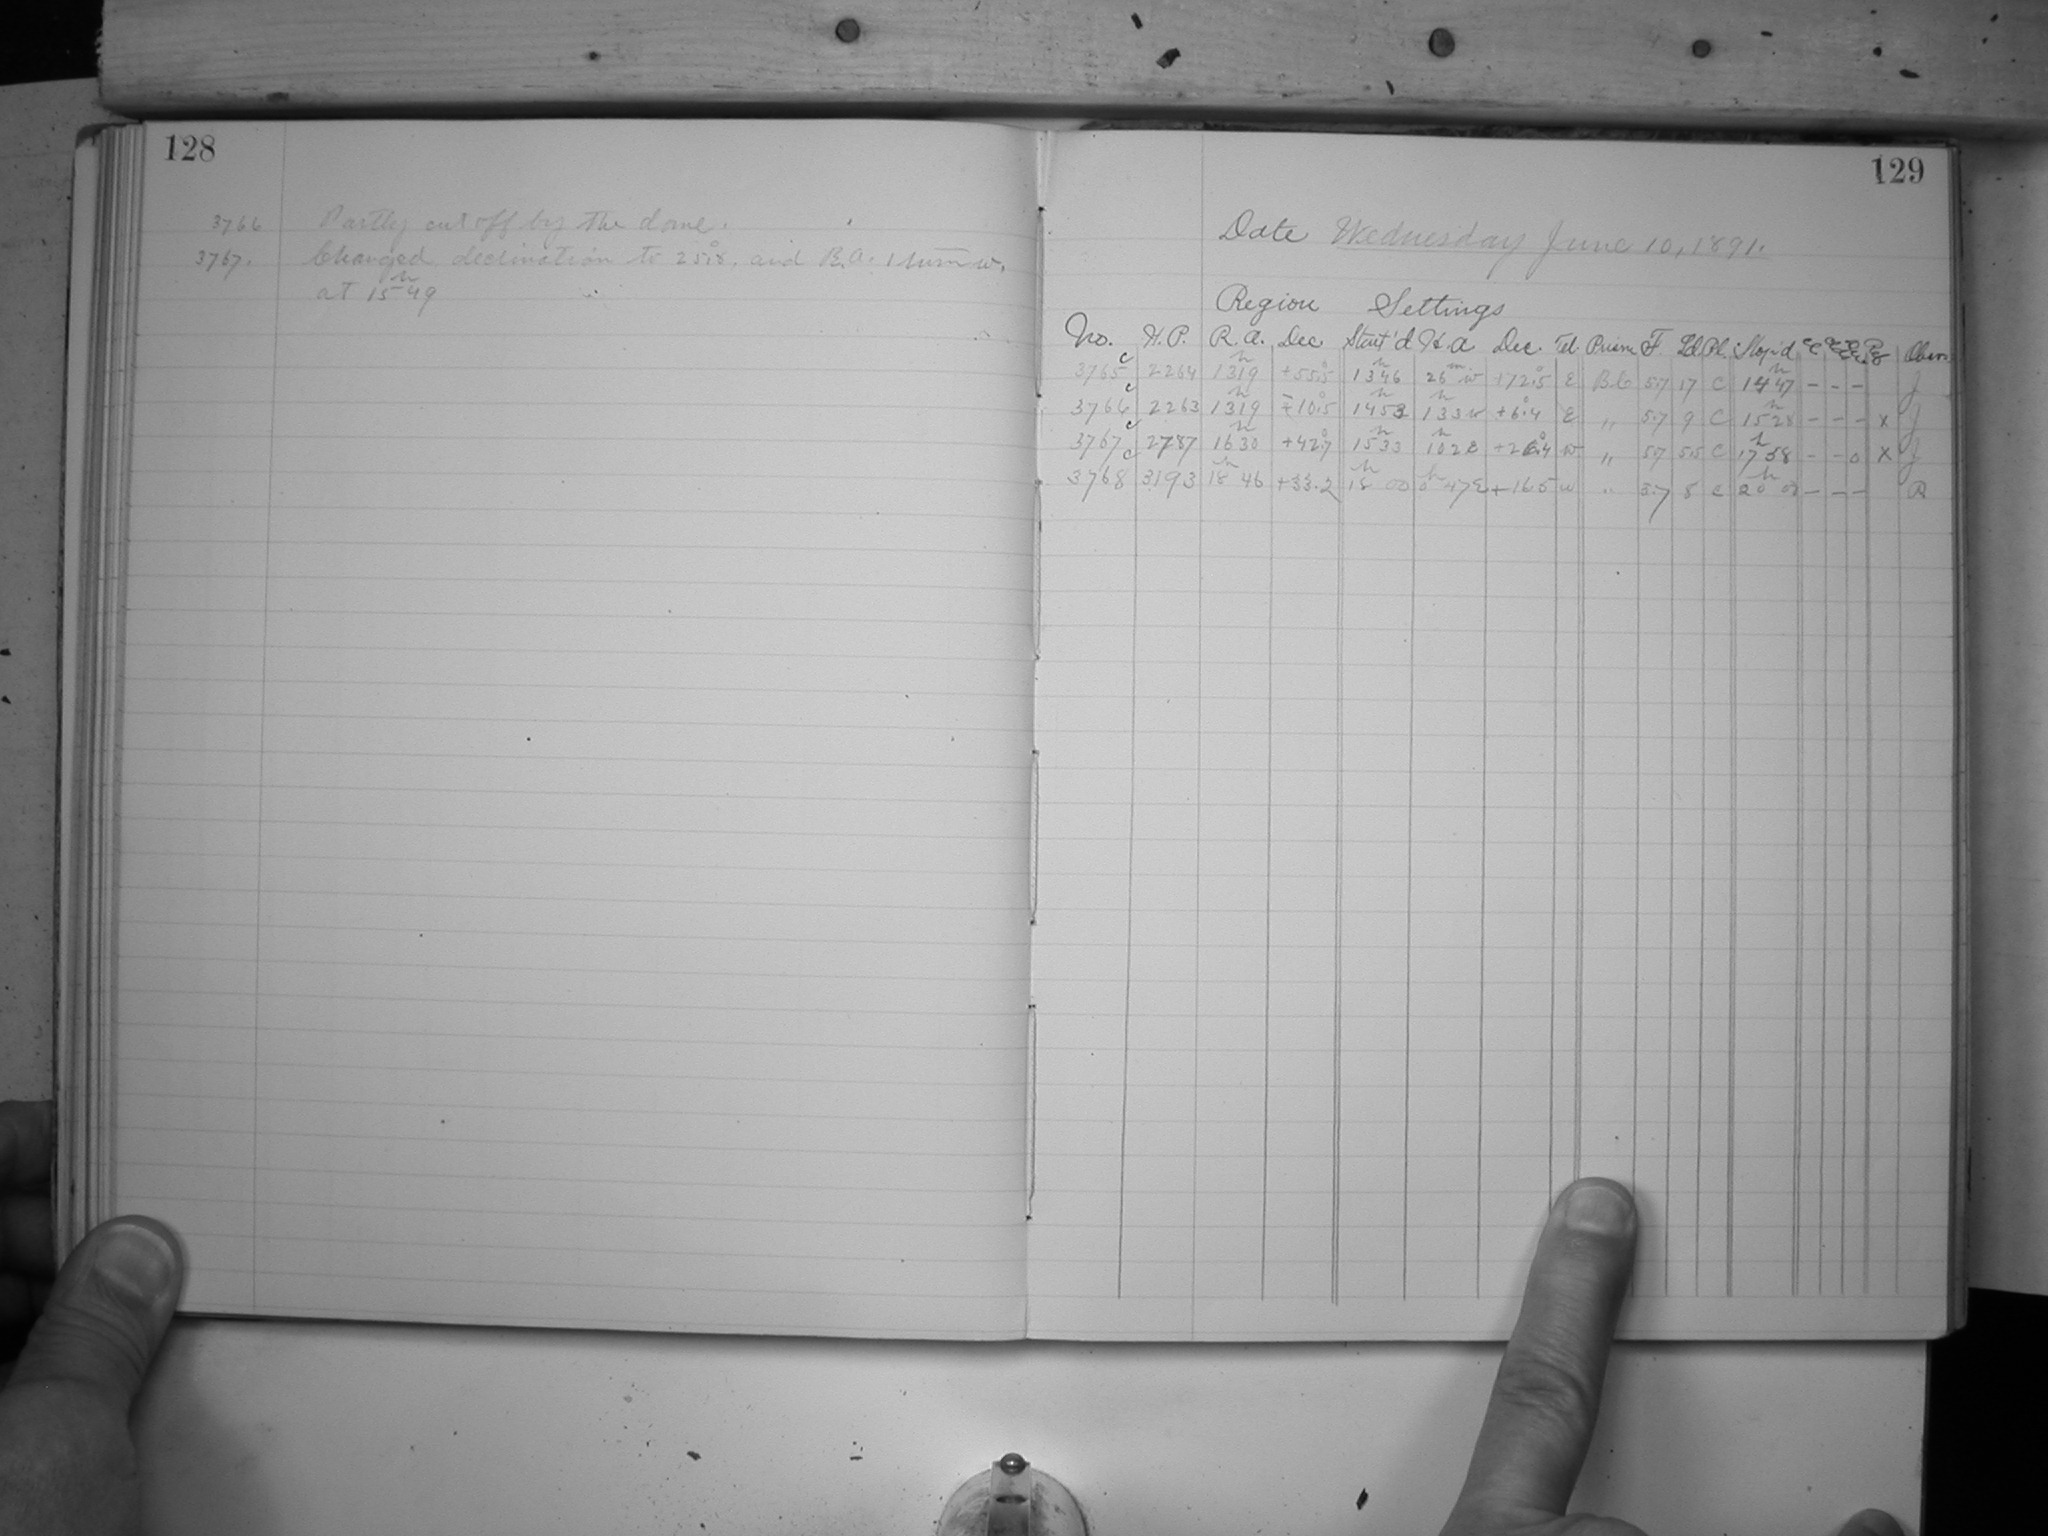 128
3766 Partly cut off by the dome.
3767. Changed declination to 25°.8, and R.A. 1 turn w.
at 15h 49
129
Date Wednesday June 10, 1891.
Region Settings
No. H.P. R.A. Dec. Start'd H.A Dec. Tel. Prism F. Pl. Stop'd Obsr.
3765 c 2264 13h19 +55°.5 13h46 26m w +72°.5 E B.C 5.7 17 C 14h47 - - - J
3766 c 2263 13h19 10°.5 14h53 1h33w +6°.4 E " 5.7 9 C 15h28 - - - x J
3767 c 2787 16h30 +42°.7 15h33 1h02E +26°.4 w " 5.7 55 C 17h38 - - o x J
3768 c 3193 18h46 +33.2 18h00 0h47E +16.5 w " 5.7 8 c 20h00 - - - R